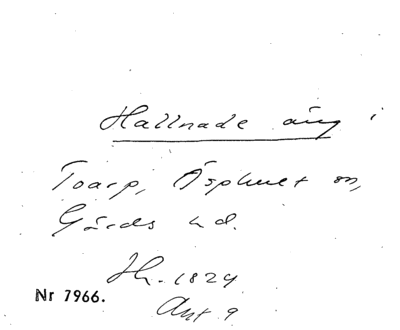 Hallnade äng i
Toarp, Äsphult sn,
Gärds hd.
Hh. 1829
Nr 7966.
Akt 9